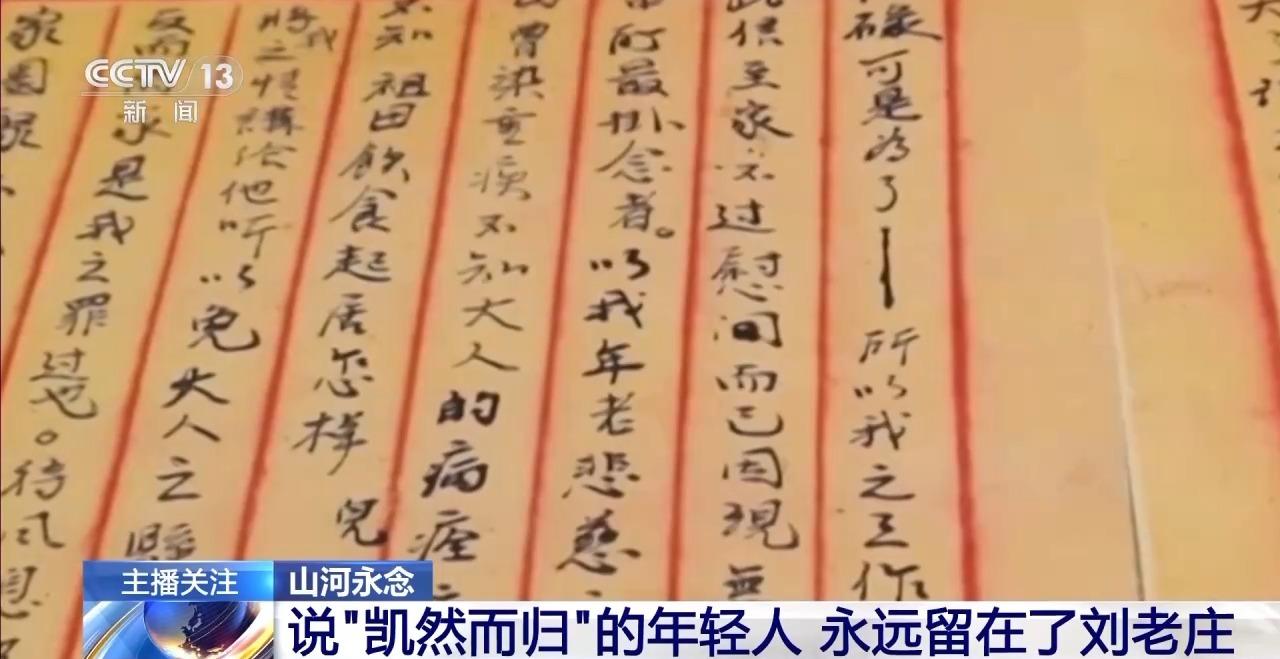 CCTV 13
新闻
碌可是為了一所以我之工作
此信至家不过慰问而已因現無
所最掛念者。以我年老悲慈
曾染重疾不知大人的病痊
不知祖田飲食起居怎样 兒
將我之情講給他听以免大人之懸
反而 是我之罪过也。待
家園
主播关注
山河永念
说"凯然而归"的年轻人 永远留在了刘老庄